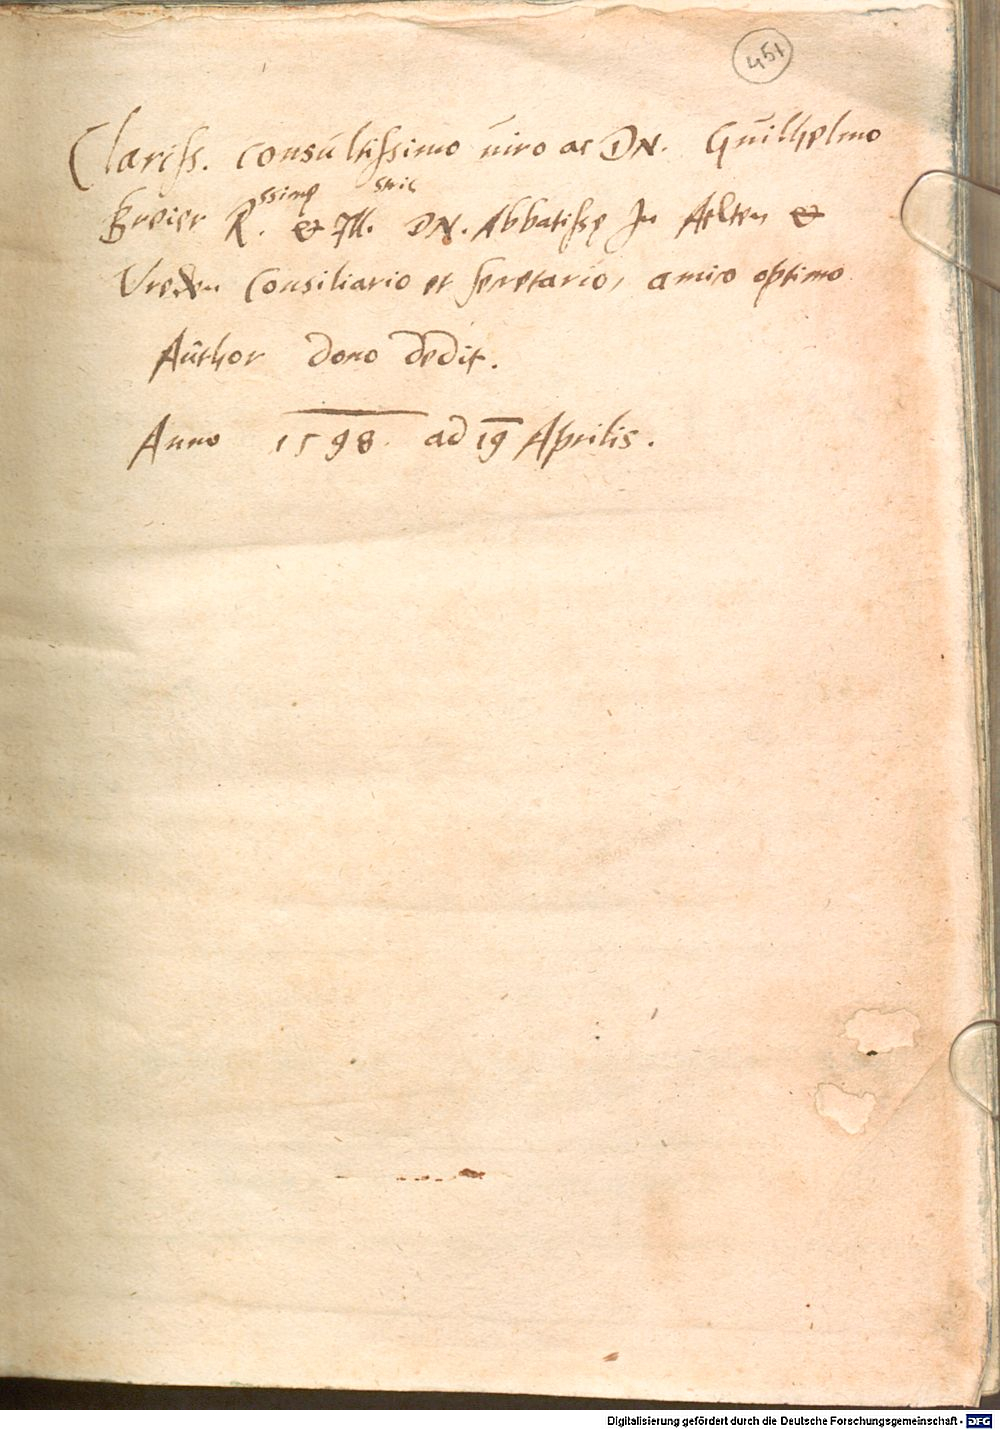 451
Clariss. consultissimo viro ac DN. Guilhelmo
Breier R.ssimę et Ill.stris DN. Abbatissę In Aelten et
Vreden Consiliario et secretario, amico optimo
Author dono dedit.
Anno 1598. ad 19 Aprilis.
Digitalisierung gefördert durch die Deutsche Forschungsgemeinschaft - DFG